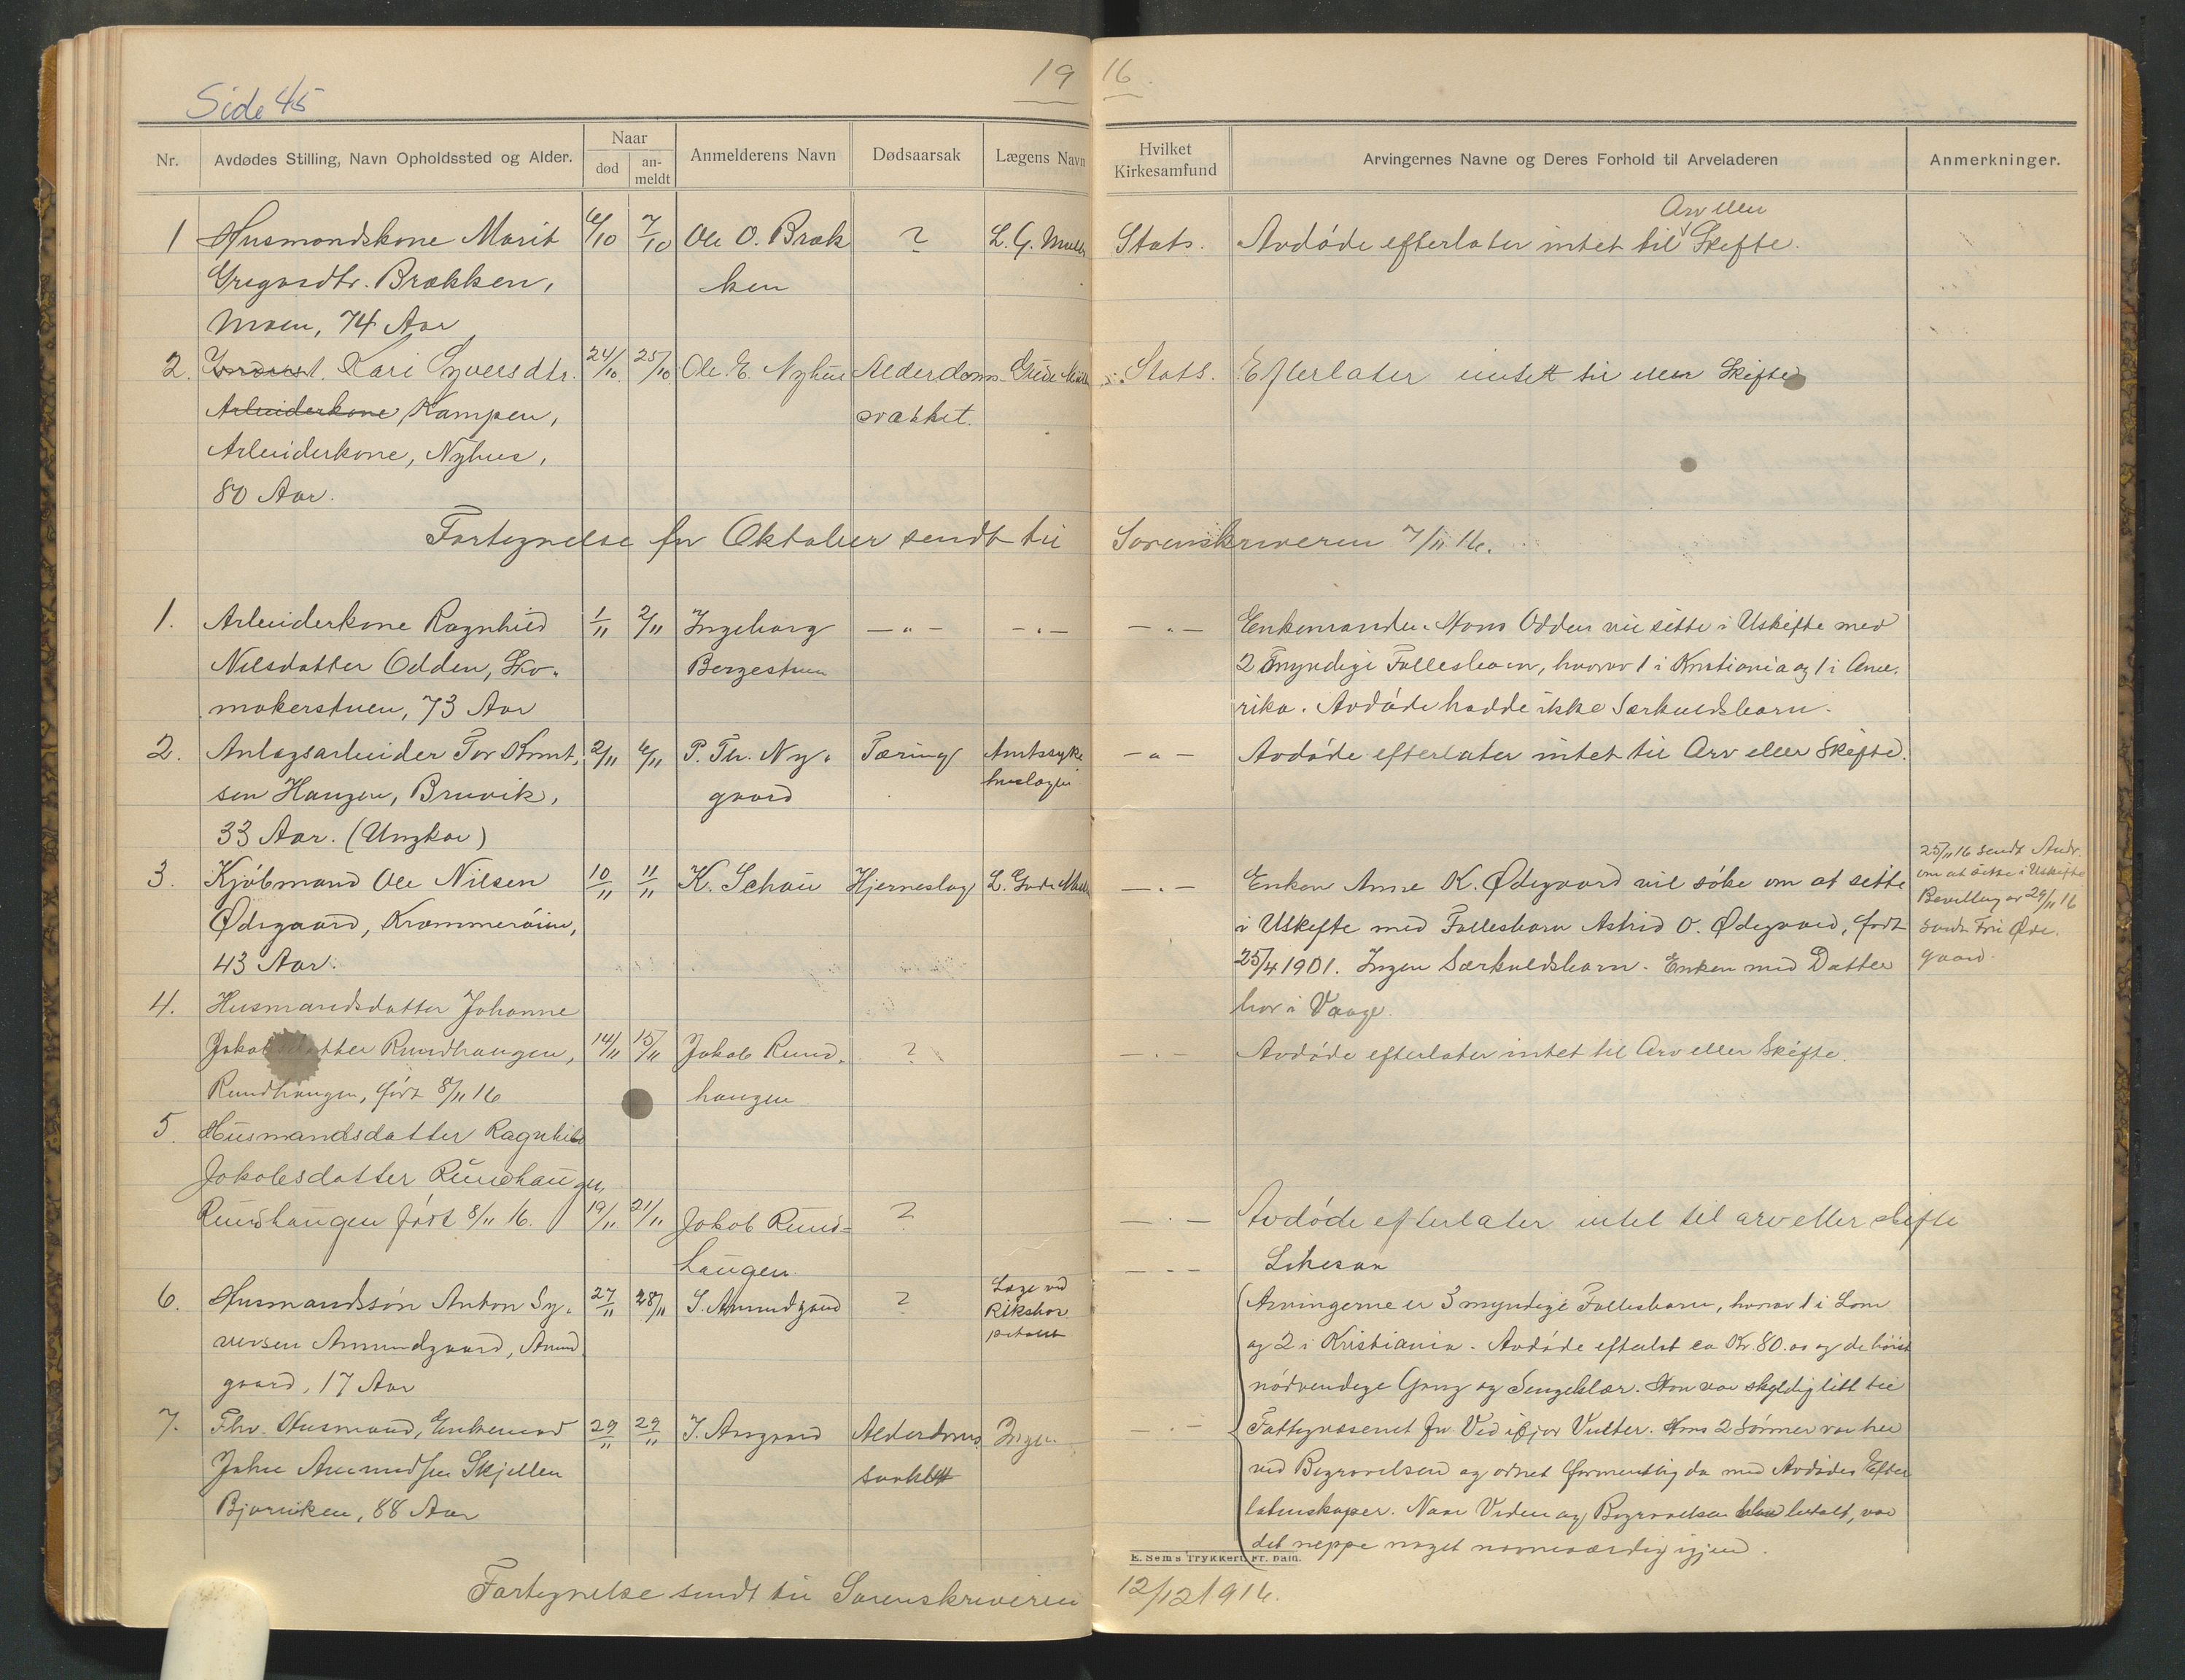 Side 45
19 16.
Nr. Avdødes Stilling, Navn Opholdssted og Alder. Naar død an-meldt Anmelderens Navn Dødsaarsak Lægens Navn Hvilket Kirkesamfund Arvingernes Navne og Deres Forhold til Arveladeren Anmerkninger.
Arv eller
1 Husmandskone Marit 6/10 7/10 Ole O. Bræk ? L. G. Müller Stats. Avdøde efterlater intet til Skifte.
Gregarsdtr. Brækken, ken
Moen, 74 Aar
2. Kari Syversdtr. 24/10. 25/10. Ole E. Nyhus Alderdoms- Stats. Efterlater intet til eller Skifte
Arbeiderkone Kampen, svækket.
Arbeiderkone, Nyhus,
80 Aar.
Fortegnelse for Oktober sendt til Sorenskriveren 7/11 16.
1. Arbeiderkone Ragnhild 1/11 2/11 Ingeborg — " — — " — — " — Enkemanden Hans Odden vil sitte i Uskifte med
Nilsdatter Odden, Sko- Bergestuen 2 myndige Fællesbarn, hvorav 1 i Kristiania og 1 i Ame-
makerstuen, 73 Aar rika. Avdøde hadde ikke Særkuldsbarn.
2. Anlægsarbeider Tor Knut- 2/11 6/11 P. Th. Ny- Tæring Amtssyke — " — Avdøde efterlater intet til Arv eller Skifte.
sen Haugen, Bruvik, gaard huslægen
33 Aar. (Ungkar)
25/11 16 sendt Andr.
3. Kjøbmand Ole Nilsen 10/11 11/11 K. Schou Hjerneslag — " — Enken Anne K. Ødegaard vil søke om at sitte om at sitte i Uskifte
Bevilling av 29/11 16
Ødegaard, Krammerøien, i Uskifte med Fællesbarn Astrid O. Ødegaard, født sendt Fru Øde-
43 Aar. 25/4 1901. Ingen Særkuldsbarn. Enken med Datter gaard.
4. Husmandsdatter Johanne bor i Vaage.
Jakobsdatter Rundhaugen, 14/11 15/11 Jakob Rund- ? — " — Avdøde efterlater intet til Arv eller Skifte.
Rundhaugen, født 8/11 16 haugen
5. Husmandsdatter Ragnhild
Jakobsdatter Rundhaugen,
Rundhaugen født 8/11 16. 19/11 21/11 Jakob Rund- ? — " — Avdøde efterlater intet til arv eller skifte
haugen — " — Likesaa
Læge ved
6. Husmandssøn Anton Sy- 27/11 28/11 S. Amundgaard ? Rikshos- Arvingerne er 3 myndige Fællesbarn, hvorav 1 i Lom
pitalet
versen Amundgaard, Amund- og 2 i Kristiania. Avdøde efterlot ca Kr. 80.00 og de høist
gaard, 17 Aar nødvendige Gang og Sengeklær. Han var skyldig litt til
7. Fhv. Husmand, Enkemand 29/11 29/11 Alderdoms Ingen — " — Fattigvæsenet for Ved ifjor Vinter. Hans 2 Sønner var her
Skjellen svækket ved Begravelsen og ordnet formentlig da med Avdødes Efter
88 Aar latenskaper. Naar Veden og Begravelsen blev betalt, var
det neppe noget nævneværdig igjen.
E. Sems Trykkeri, Fr.hald.
Fortegnelse sendt til Sorenskriveren 12/12 1916.